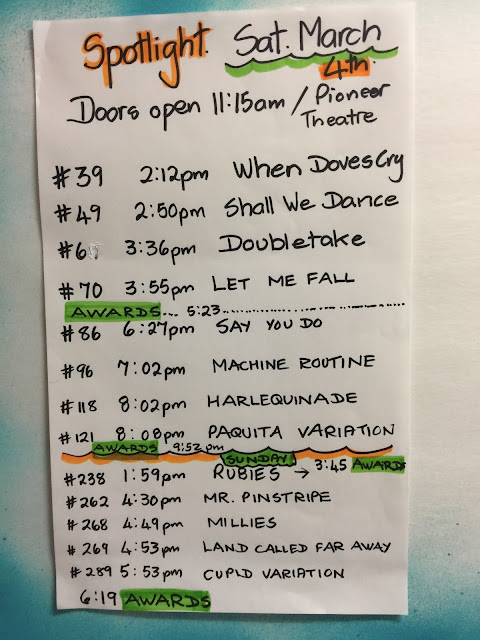 Spotlight. Sat. March 4th.
Doors open 11:15am / Pioneer Theatre
#39 2:12pm When Doves Cry
#49 2:50pm Shall We Dance
3:36pm Doubletake
#70 3:55pm LET ME FALL
AWARDS... 5:23
#86 6:27pm SAY YOU DO
#96 7:02pm MACHINE ROUTINE
#118 8:02pm HARLEQUINADE
#121 8:08pm PAQUITA VARIATION
AWARDS 9:52pm
SUNDAY
#238 1:59pm RUBIES → 3:45 AWARDS
#262 4:30pm MR. PINSTRIPE
#268 4:49pm MILLIES
#269 4:53pm LAND CALLED FAR AWAY
#289 5:53pm CUPID VARIATION
6:19 AWARDS